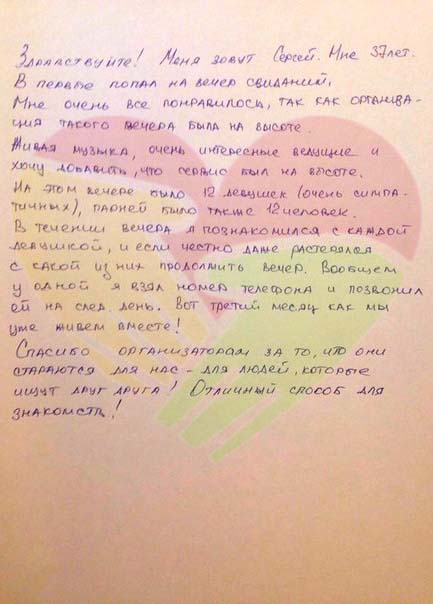 Здравствуйте! Меня зовут Сергей. Мне 37 лет.
В первые попал на вечер свиданий,
Мне очень все понравилось, так как организа-
ция такого вечера была на высоте.
Живая музыка, очень интересные ведущие и
хочу добавить, что сервис был на высоте.
На этом вечере было 12 девушек (очень симпа-
тичных), парней было также 12 человек.
В течении вечера я познакомился с каждой
девушкой, и если честно даже растерялся
с какой из них продолжить вечер. Вообщем
у одной я взял номер телефона и позвонил
ей на след. день. Вот третий месяц как мы
уже живем вместе!
Спасибо организаторам за то, что они
стараются для нас - для людей, которые
ищут друг друга! Отличный способ для
знакомств!